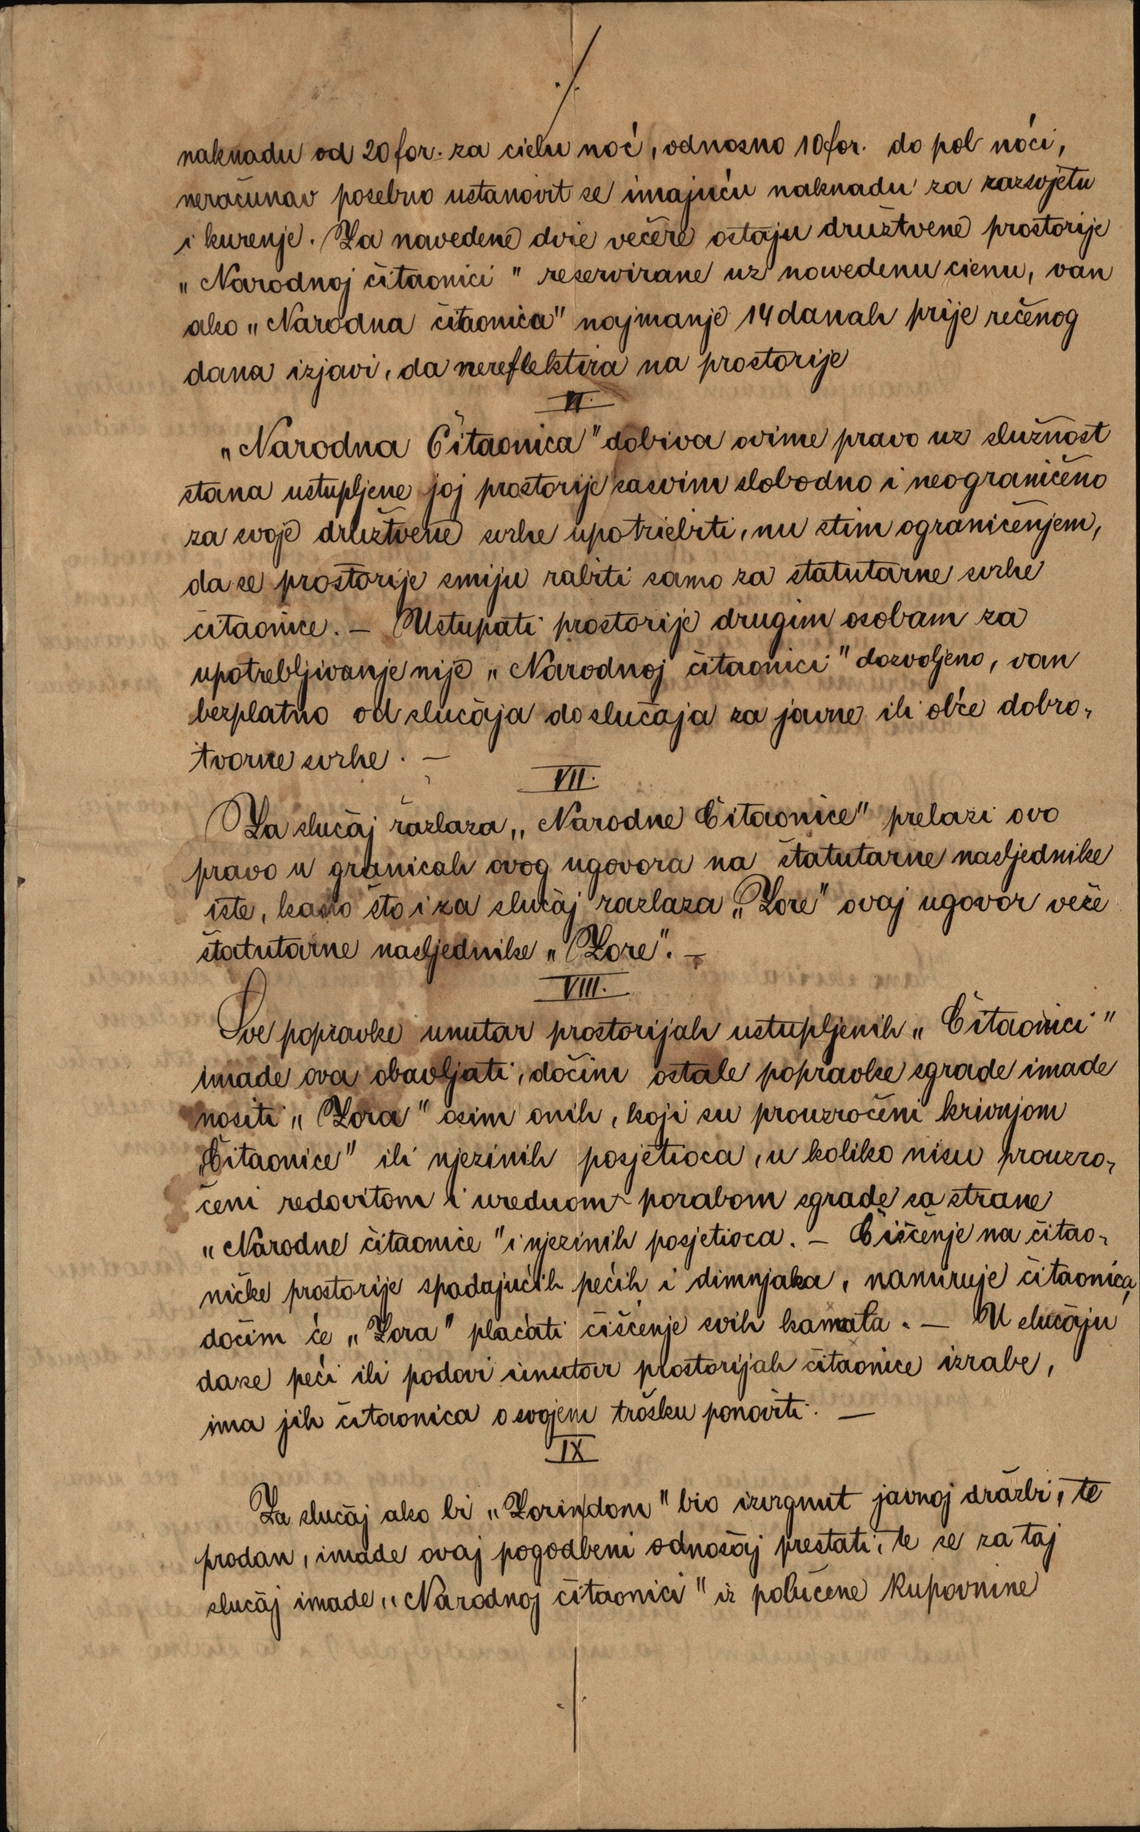 naknadu od 20 for. za cielu noć, odnosno 10 for. do pol noći,
neračunav posebno ustanovit se imajuću naknadu za razsvjetu
i kurenje. Za navedene dvie večere ostaju družtvene prostorije
„Narodnoj čitaonici" reservirane uz navedenu cienu, van
ako „Narodna čitaonica" najmanje 14 danah prije rečenog
dana izjavi, da nereflektira na prostorije
VI.
„Narodna Čitaonica" dobiva ovime pravo uz služnost
stana ustupljene joj prostorije sasvim slobodno i neograničeno
za svoje družtvene svrhe upotriebiti, nu stim ograničenjem,
da se prostorije smiju rabiti samo za statutarne svrhe
čitaonice. — Ustupati prostorije drugim osobam za
upotrebljivanje nije „Narodnoj čitaonici" dozvoljeno, van
bezplatno od slučaja do slučaja za javne ili obće dobro-
tvorne svrhe. —
VII.
Za slučaj razlaza „Narodne Čitaonice" prelazi ovo
pravo u granicah ovog ugovora na štatutarne nasljednike
iste, kano što i za slučaj razlaza „Zore" ovaj ugovor veže
štatutarne nasljednike „Zore". —
VIII.
Sve popravke unutar prostorijah ustupljenih „Čitaonici"
imade ova obavljati, dočim ostale popravke sgrade imade
nositi „Zora" osim onih, koji su prouzročeni krivnjom
„Čitaonice" ili njezinih posjetioca, u koliko nisu prouzro-
čeni redovitom i urednom porabom sgrade sa strane
„Narodne čitaonice" i njezinih posjetioca. — Čišćenje na čitao-
ničke prostorije spadajućih pećih i dimnjaka, namiruje čitaonica,
dočim će „Zora" plaćati čišćenje svih kanata. — U slučaju
da se peći ili podovi unutar prostorijah čitaonice izrabe,
ima jih čitaonica o svojem trošku ponoviti. —
IX
Za slučaj ako bi „Zorin dom" bio izvrgnut javnoj dražbi, te
prodan, imade ovaj pogodbeni odnošaj prestati, te se za taj
slučaj imade „Narodnoj čitaonici" iz polučene kupovnine